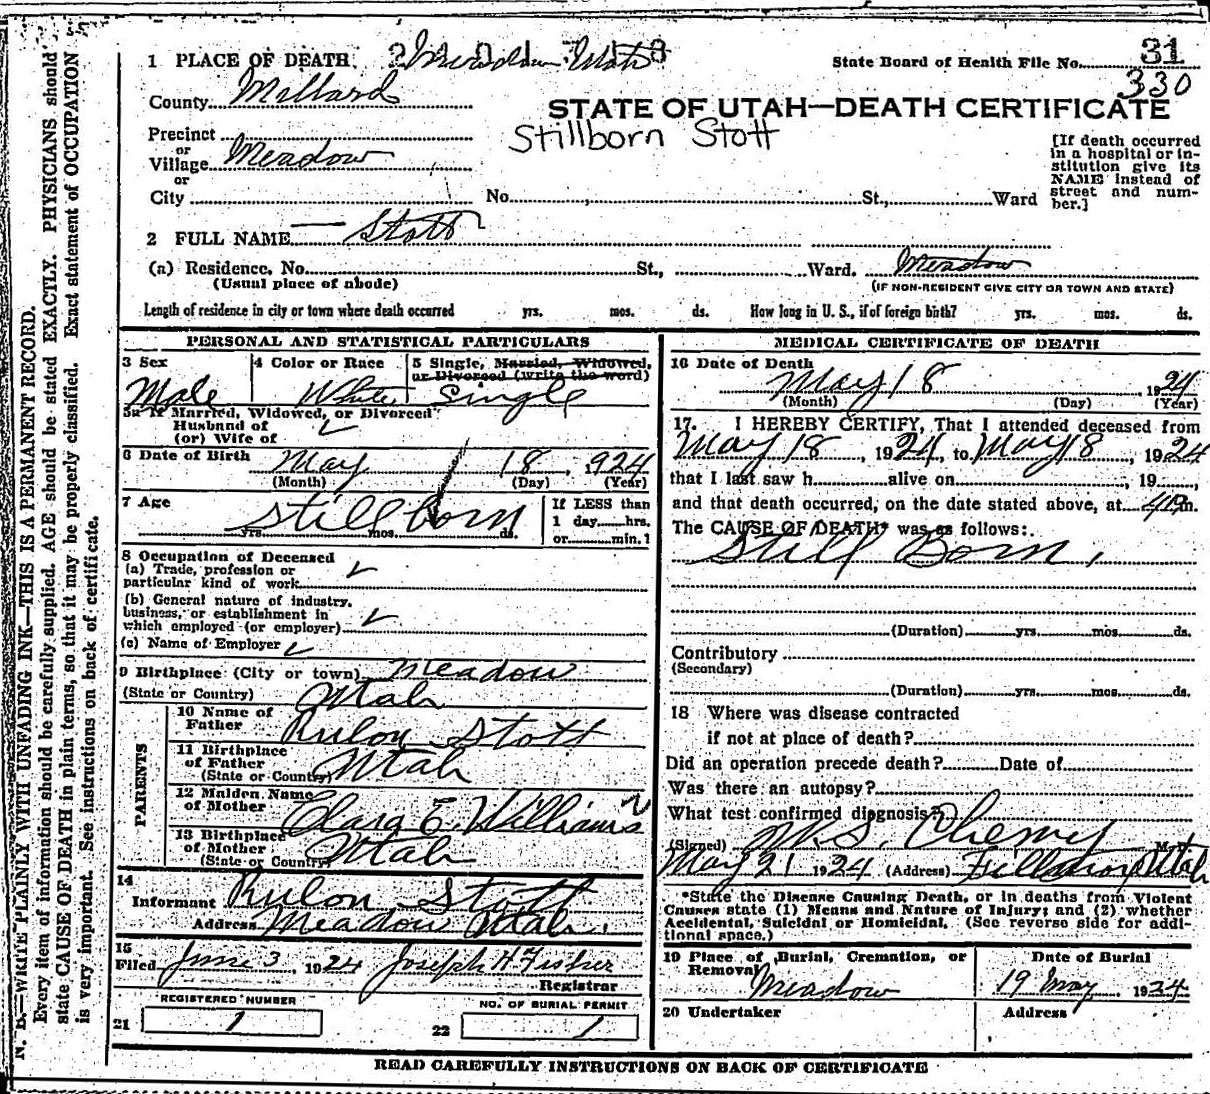 1 PLACE OF DEATH
State Board of Health File No. 31
330
County Millard
STATE OF UTAH—DEATH CERTIFICATE
Stillborn Stott
Precinct
or
Village Meadow
or
City
No. St., Ward
[If death occurred
in a hospital or in-
stitution give its
NAME instead of
street and num-
ber.]
2 FULL NAME — Stott
(a) Residence. No. St., Ward. Meadow
(Usual place of abode)
(IF NON-RESIDENT GIVE CITY OR TOWN AND STATE)
Length of residence in city or town where death occurred yrs. mos. ds. How long in U. S., if of foreign birth? yrs. mos. ds.
PERSONAL AND STATISTICAL PARTICULARS
3 Sex
Male
4 Color or Race
White
5 Single, Married, Widowed,
or Divorced (write the word)
Single
5a If Married, Widowed, or Divorced
Husband of
(or) Wife of
6 Date of Birth May 18, 924
(Month) (Day) (Year)
7 Age
Stillborn
yrs. mos. ds.
If LESS than
1 day hrs.
or min.?
8 Occupation of Deceased
(a) Trade, profession or
particular kind of work
(b) General nature of industry,
business, or establishment in
which employed (or employer)
(c) Name of Employer
9 Birthplace (City or town) Meadow
(State or Country) Utah
PARENTS
10 Name of
Father Rulon Stott
11 Birthplace
of Father
(State or Country) Utah
12 Maiden Name
of Mother Clara E. Williams
13 Birthplace
of Mother
(State or Country) Utah
14
Informant Rulon Stott
Address Meadow Utah.
15
Filed June 3, 1924 Joseph H Fisher
Registrar
REGISTERED NUMBER
21 1
NO. OF BURIAL PERMIT
22 1
MEDICAL CERTIFICATE OF DEATH
16 Date of Death
May 18 1924
(Month) (Day) (Year)
17. I HEREBY CERTIFY, That I attended deceased from
May 18, 1924, to May 18, 1924
that I last saw h alive on , 19 ,
and that death occurred, on the date stated above, at m.
The CAUSE OF DEATH* was as follows:
Still Born,
(Duration) yrs. mos. ds.
Contributory
(Secondary)
(Duration) yrs. mos. ds.
18 Where was disease contracted
if not at place of death?
Did an operation precede death? Date of
Was there an autopsy?
What test confirmed diagnosis?
(Signed) M. D.
May 21 1924 (Address) Fillmore Utah
*State the Disease Causing Death, or in deaths from Violent
Causes state (1) Means and Nature of Injury; and (2) whether
Accidental, Suicidal or Homicidal. (See reverse side for addi-
tional space.)
19 Place of Burial, Cremation, or
Removal Meadow
Date of Burial
19 May 1924
20 Undertaker
Address
READ CAREFULLY INSTRUCTIONS ON BACK OF CERTIFICATE
N. B.—WRITE PLAINLY WITH UNFADING INK—THIS IS A PERMANENT RECORD.
Every item of information should be carefully supplied. AGE should be stated EXACTLY. PHYSICIANS should
state CAUSE OF DEATH in plain terms, so that it may be properly classified. Exact statement of OCCUPATION
is very important. See instructions on back of certificate.